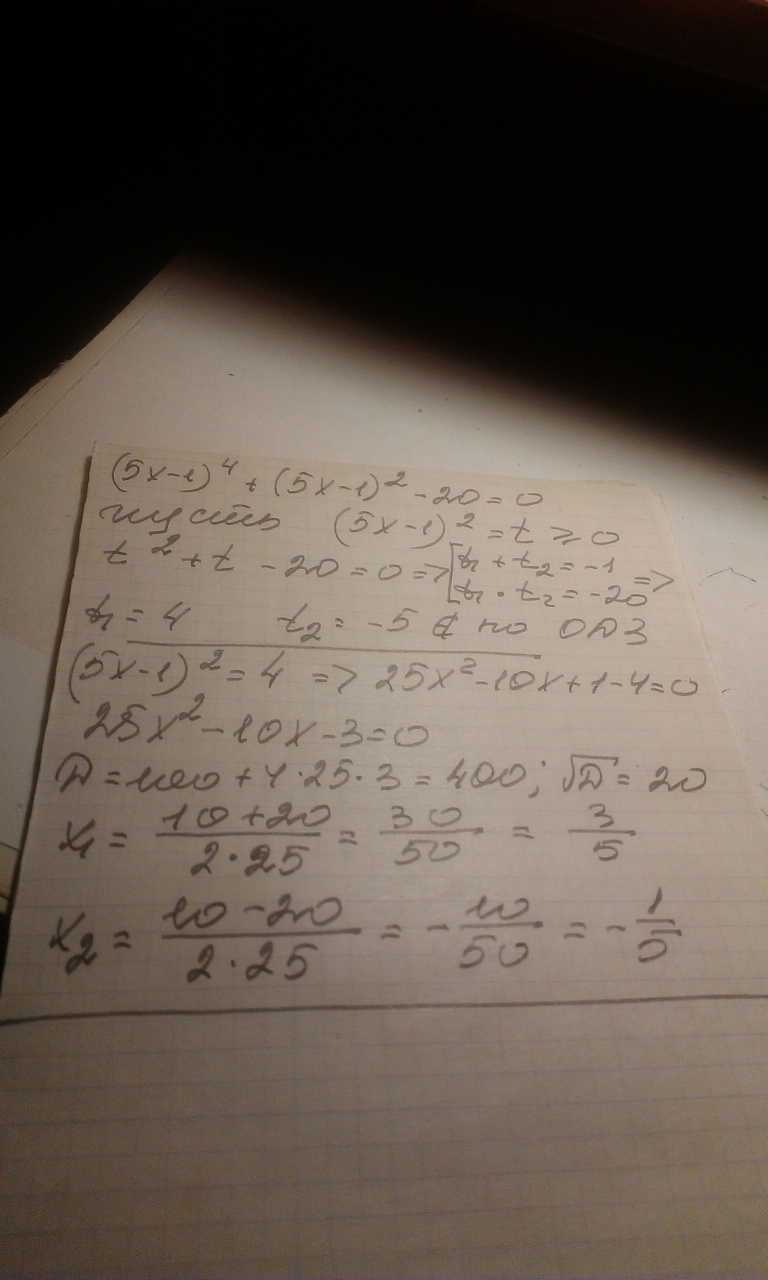 (5x-1)⁴ + (5x-1)² - 20 = 0
пусть (5x-1)² = t ⩾ 0
t² + t - 20 = 0 => [t₁ + t₂ = -1
t₁ · t₂ = -20 =>
t₁ = 4 t₂ = -5 ∉ по ОДЗ
(5x-1)² = 4 => 25x² - 10x + 1 - 4 = 0
25x² - 10x - 3 = 0
D = 100 + 4·25·3 = 400; √D = 20
x₁ = (10 + 20)/(2·25) = 30/50 = 3/5
x₂ = (10 - 20)/(2·25) = -10/50 = -1/5